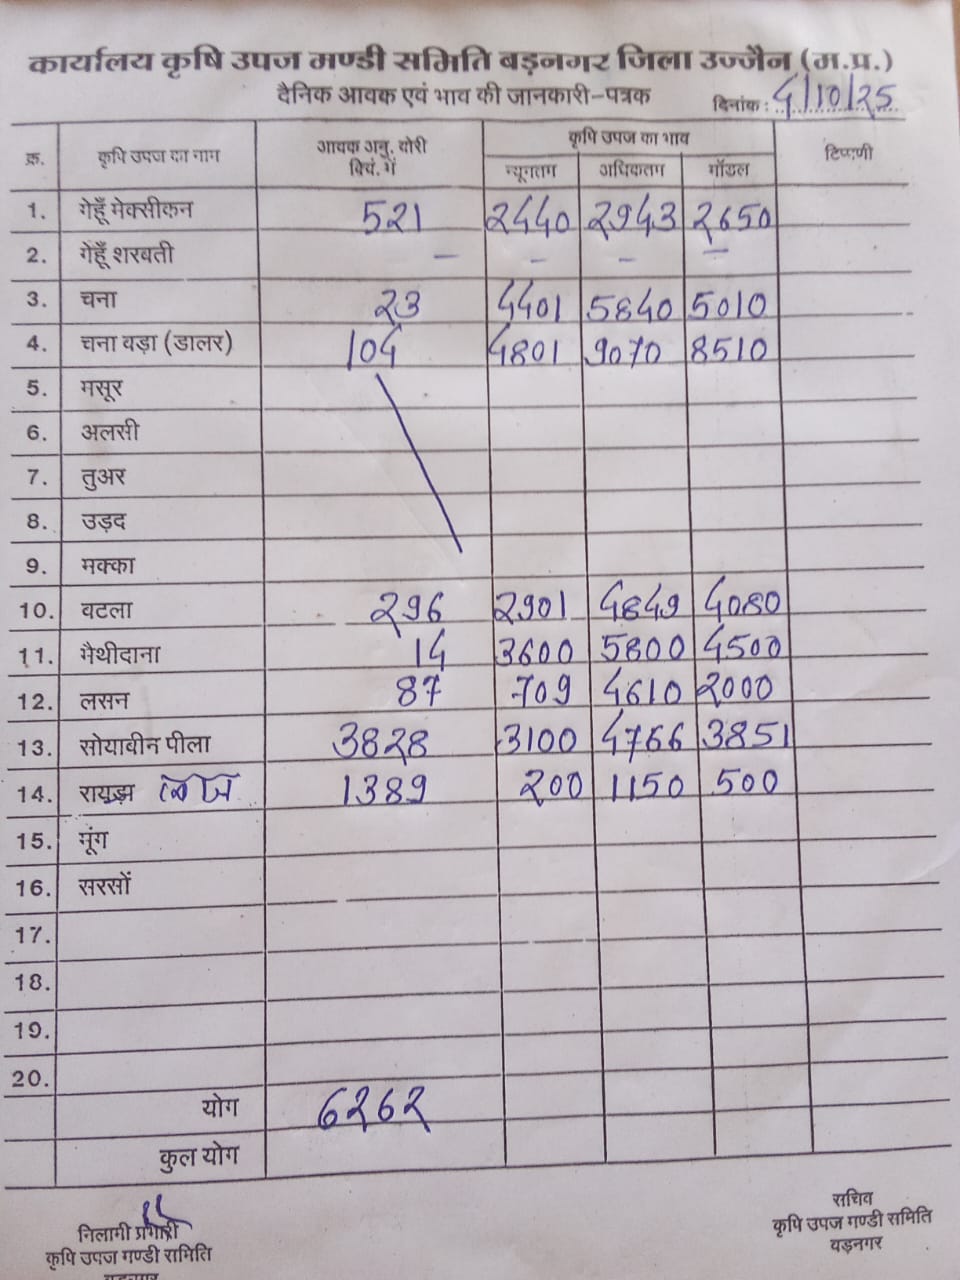 कार्यालय कृषि उपज मण्डी समिति बड़नगर जिला उज्जैन (म.प्र.)
दैनिक आवक एवं भाव की जानकारी-पत्रक दिनांक : 4/10/25
क्र. कृषि उपज का नाम आवक अनु. बोरी क्विं. में कृषि उपज का भाव टिप्पणी
न्यूनतम अधिकतम मॉडल
1. गेहूँ मेक्सीकन 521 2440 2943 2650
2. गेहूँ शरबती - - - -
3. चना 23 4401 5840 5010
4. चना बड़ा (डालर) 104 4801 9070 8510
5. मसूर
6. अलसी
7. तुअर
8. उड़द
9. मक्का
10. बटला 296 2901 4849 4080
11. मैथीदाना 14 3600 5800 4500
12. लसन 87 709 4610 2000
13. सोयाबीन पीला 3828 3100 4766 3851
14. रायड़ा 1389 200 1150 500
15. मूंग
16. सरसों
17.
18.
19.
20.
योग 6262
कुल योग
निलामी प्रभारी
कृषि उपज मण्डी समिति
बड़नगर
सचिव
कृषि उपज मण्डी समिति
बड़नगर